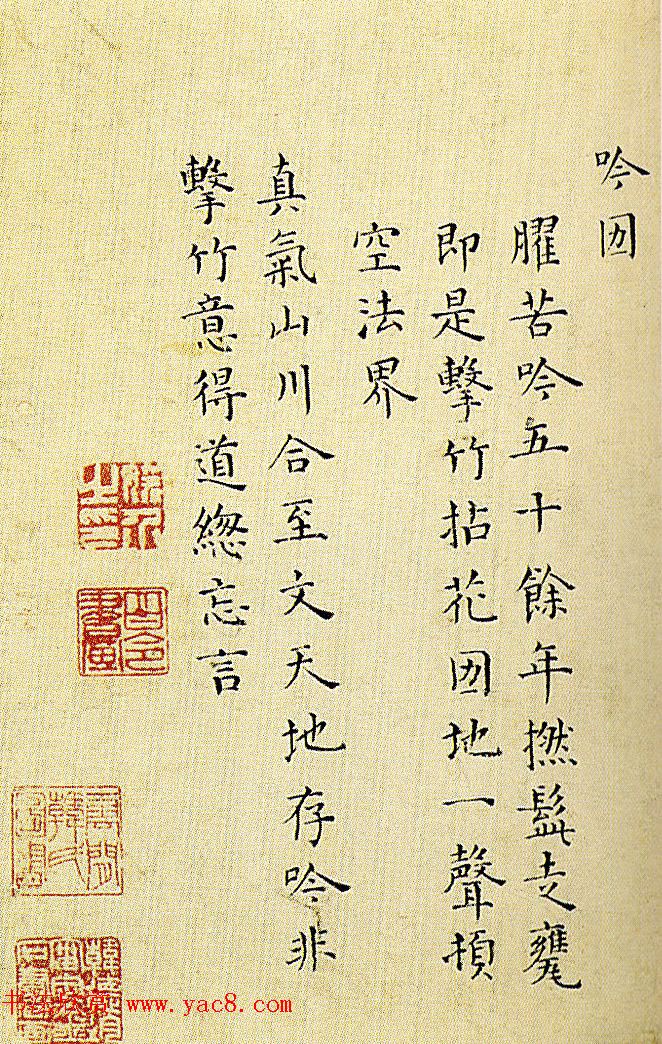 吟囝
臞苦吟五十餘年撚髭走甕
即是擊竹拈花囝地一聲頓
空法界
真氣山川合至文天地存吟非
擊竹意得道緫忘言
www.yac8.com